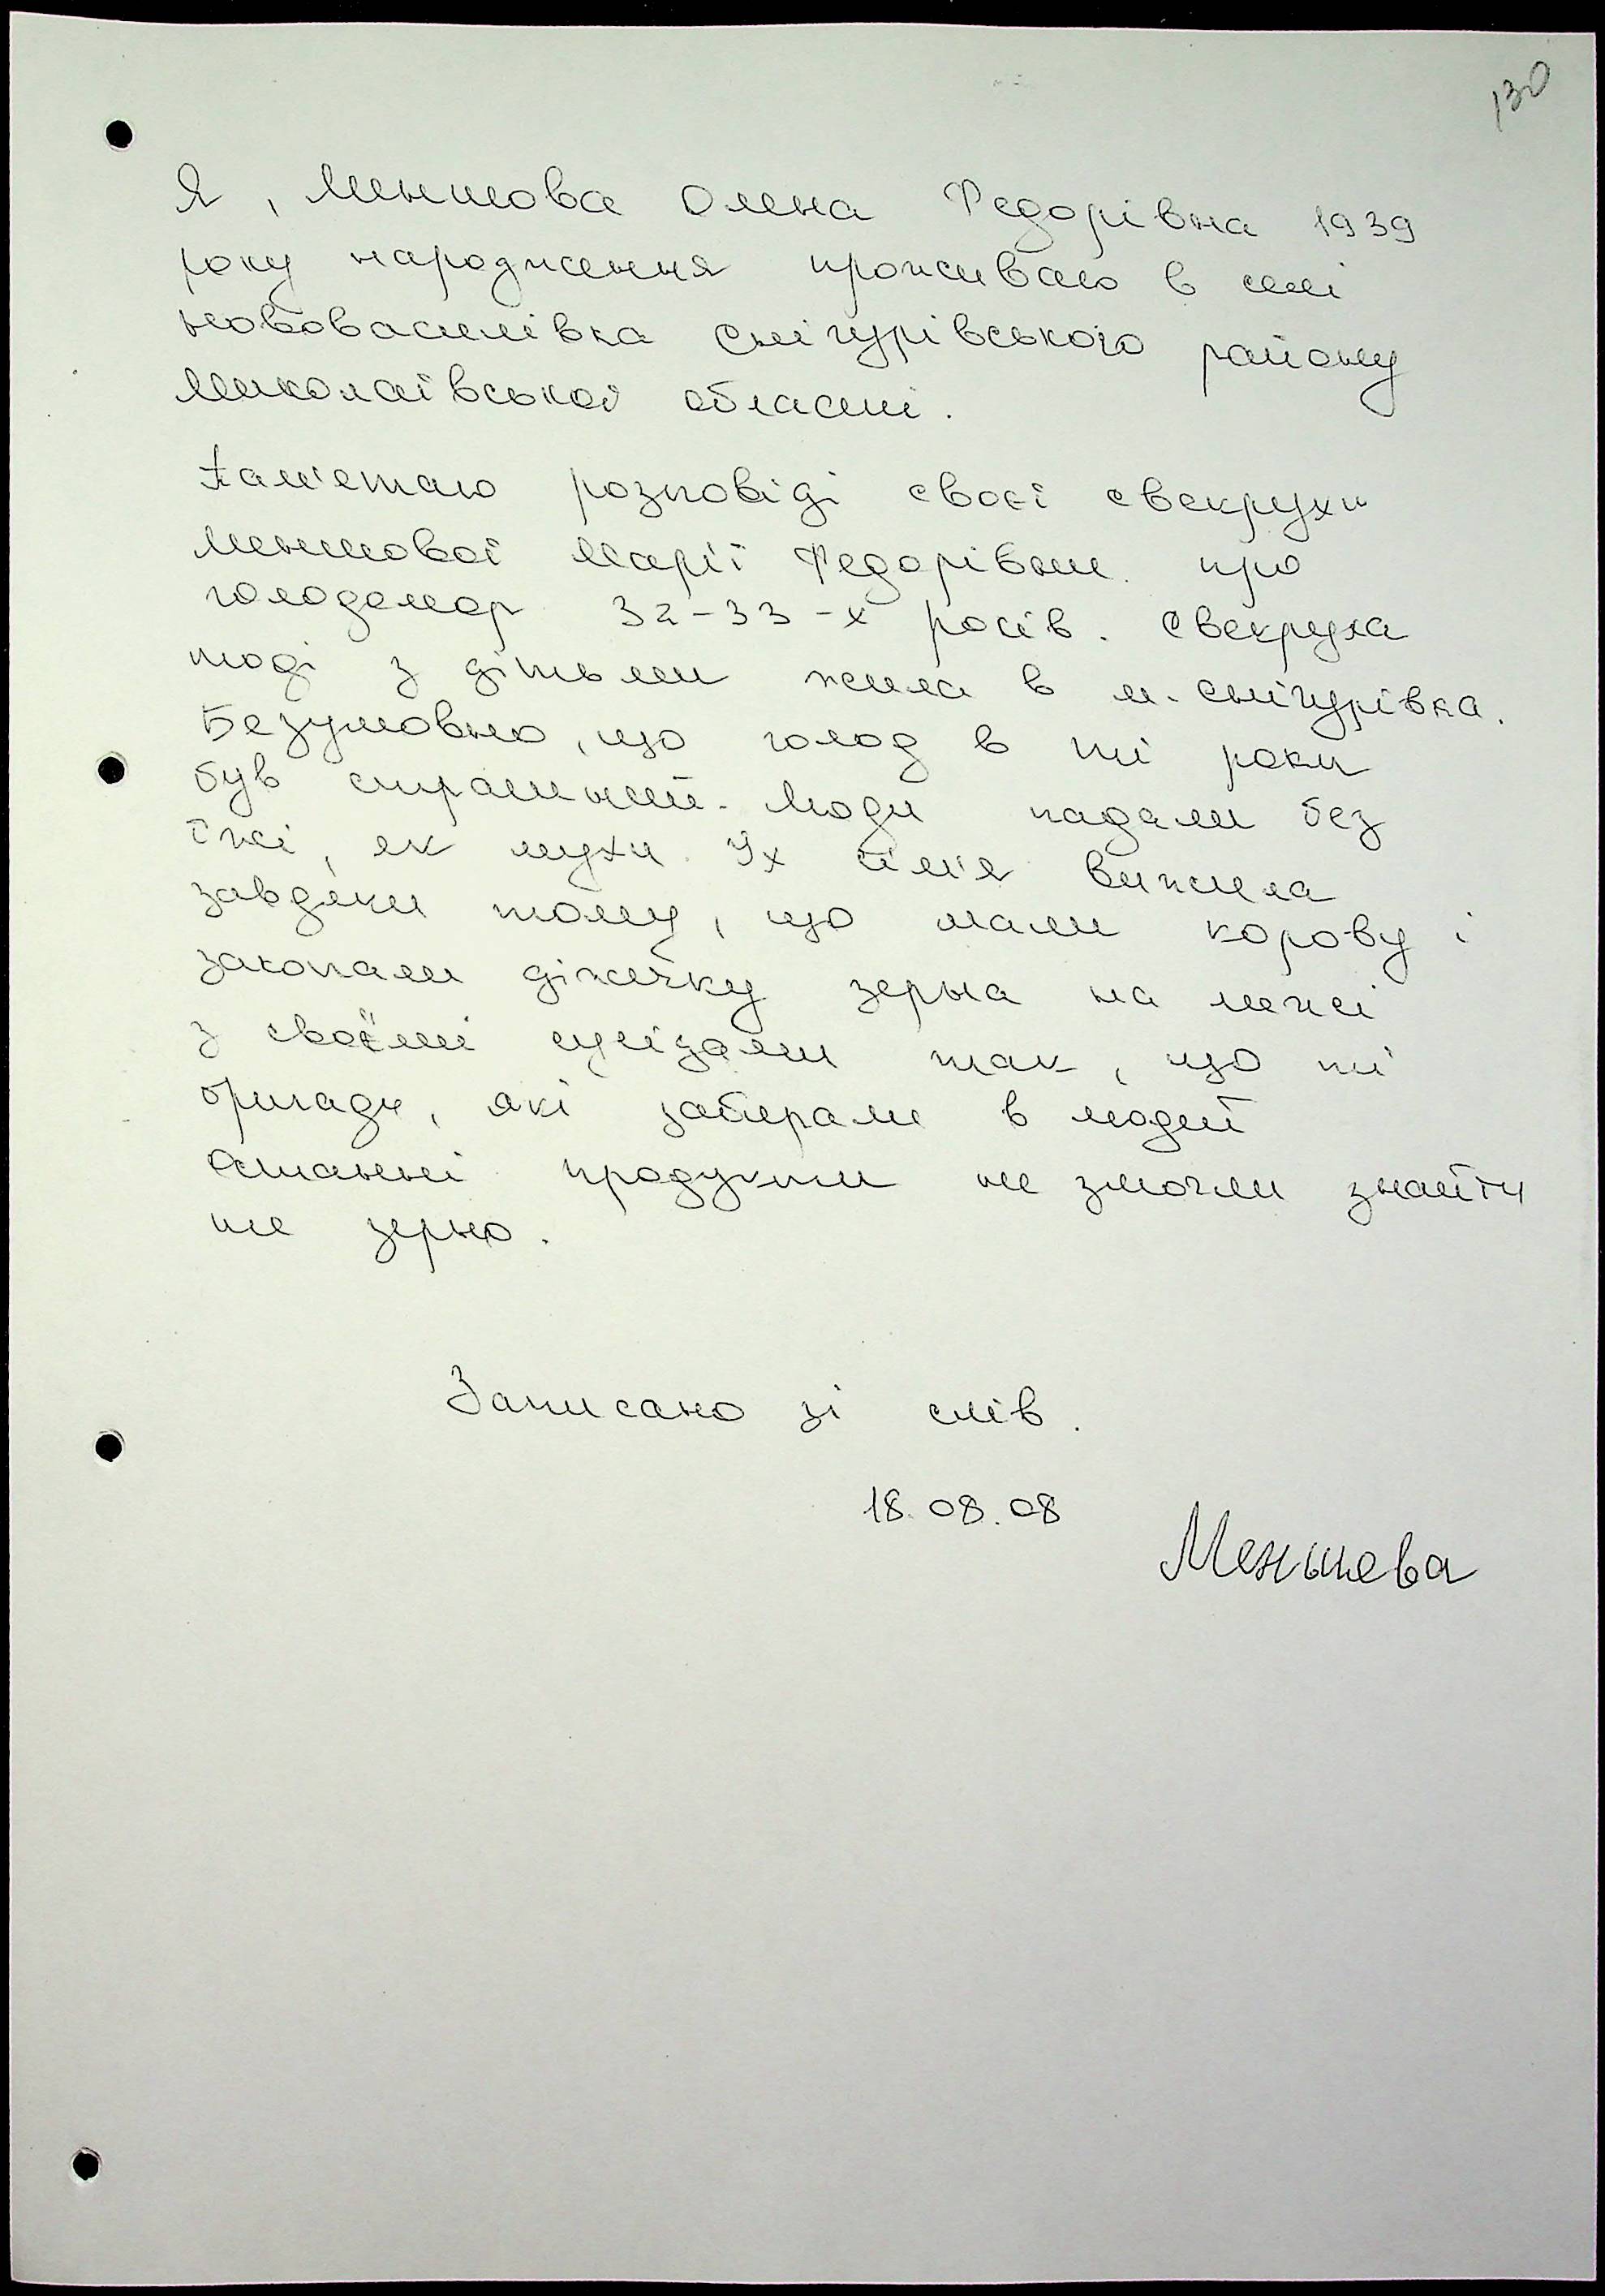 130
Я, Меншова Олена Федорівна 1939
року народження проживаю в селі
Нововасилівка Снігурівського району
Миколаївської області.
Пам'етаю розповіді своєї свекрухи
Меншової Марії Федорівни про
голодомор 32-33-х років. Свекруха
тоді з дітьми жила в м. Снігурівка.
Безумовно, що голод в ті роки
був страшний. Люди падали без
їжі, як мухи. Їх сім'я вижила
завдяки тому, що мали корову і
закопали діжечку зерна на межі
з своїми сусідами так, що ті
бригади, які забирали в людей
останні продукти не змогли знайти
те зерно.
Записано зі слів.
18.08.08
Меньшева